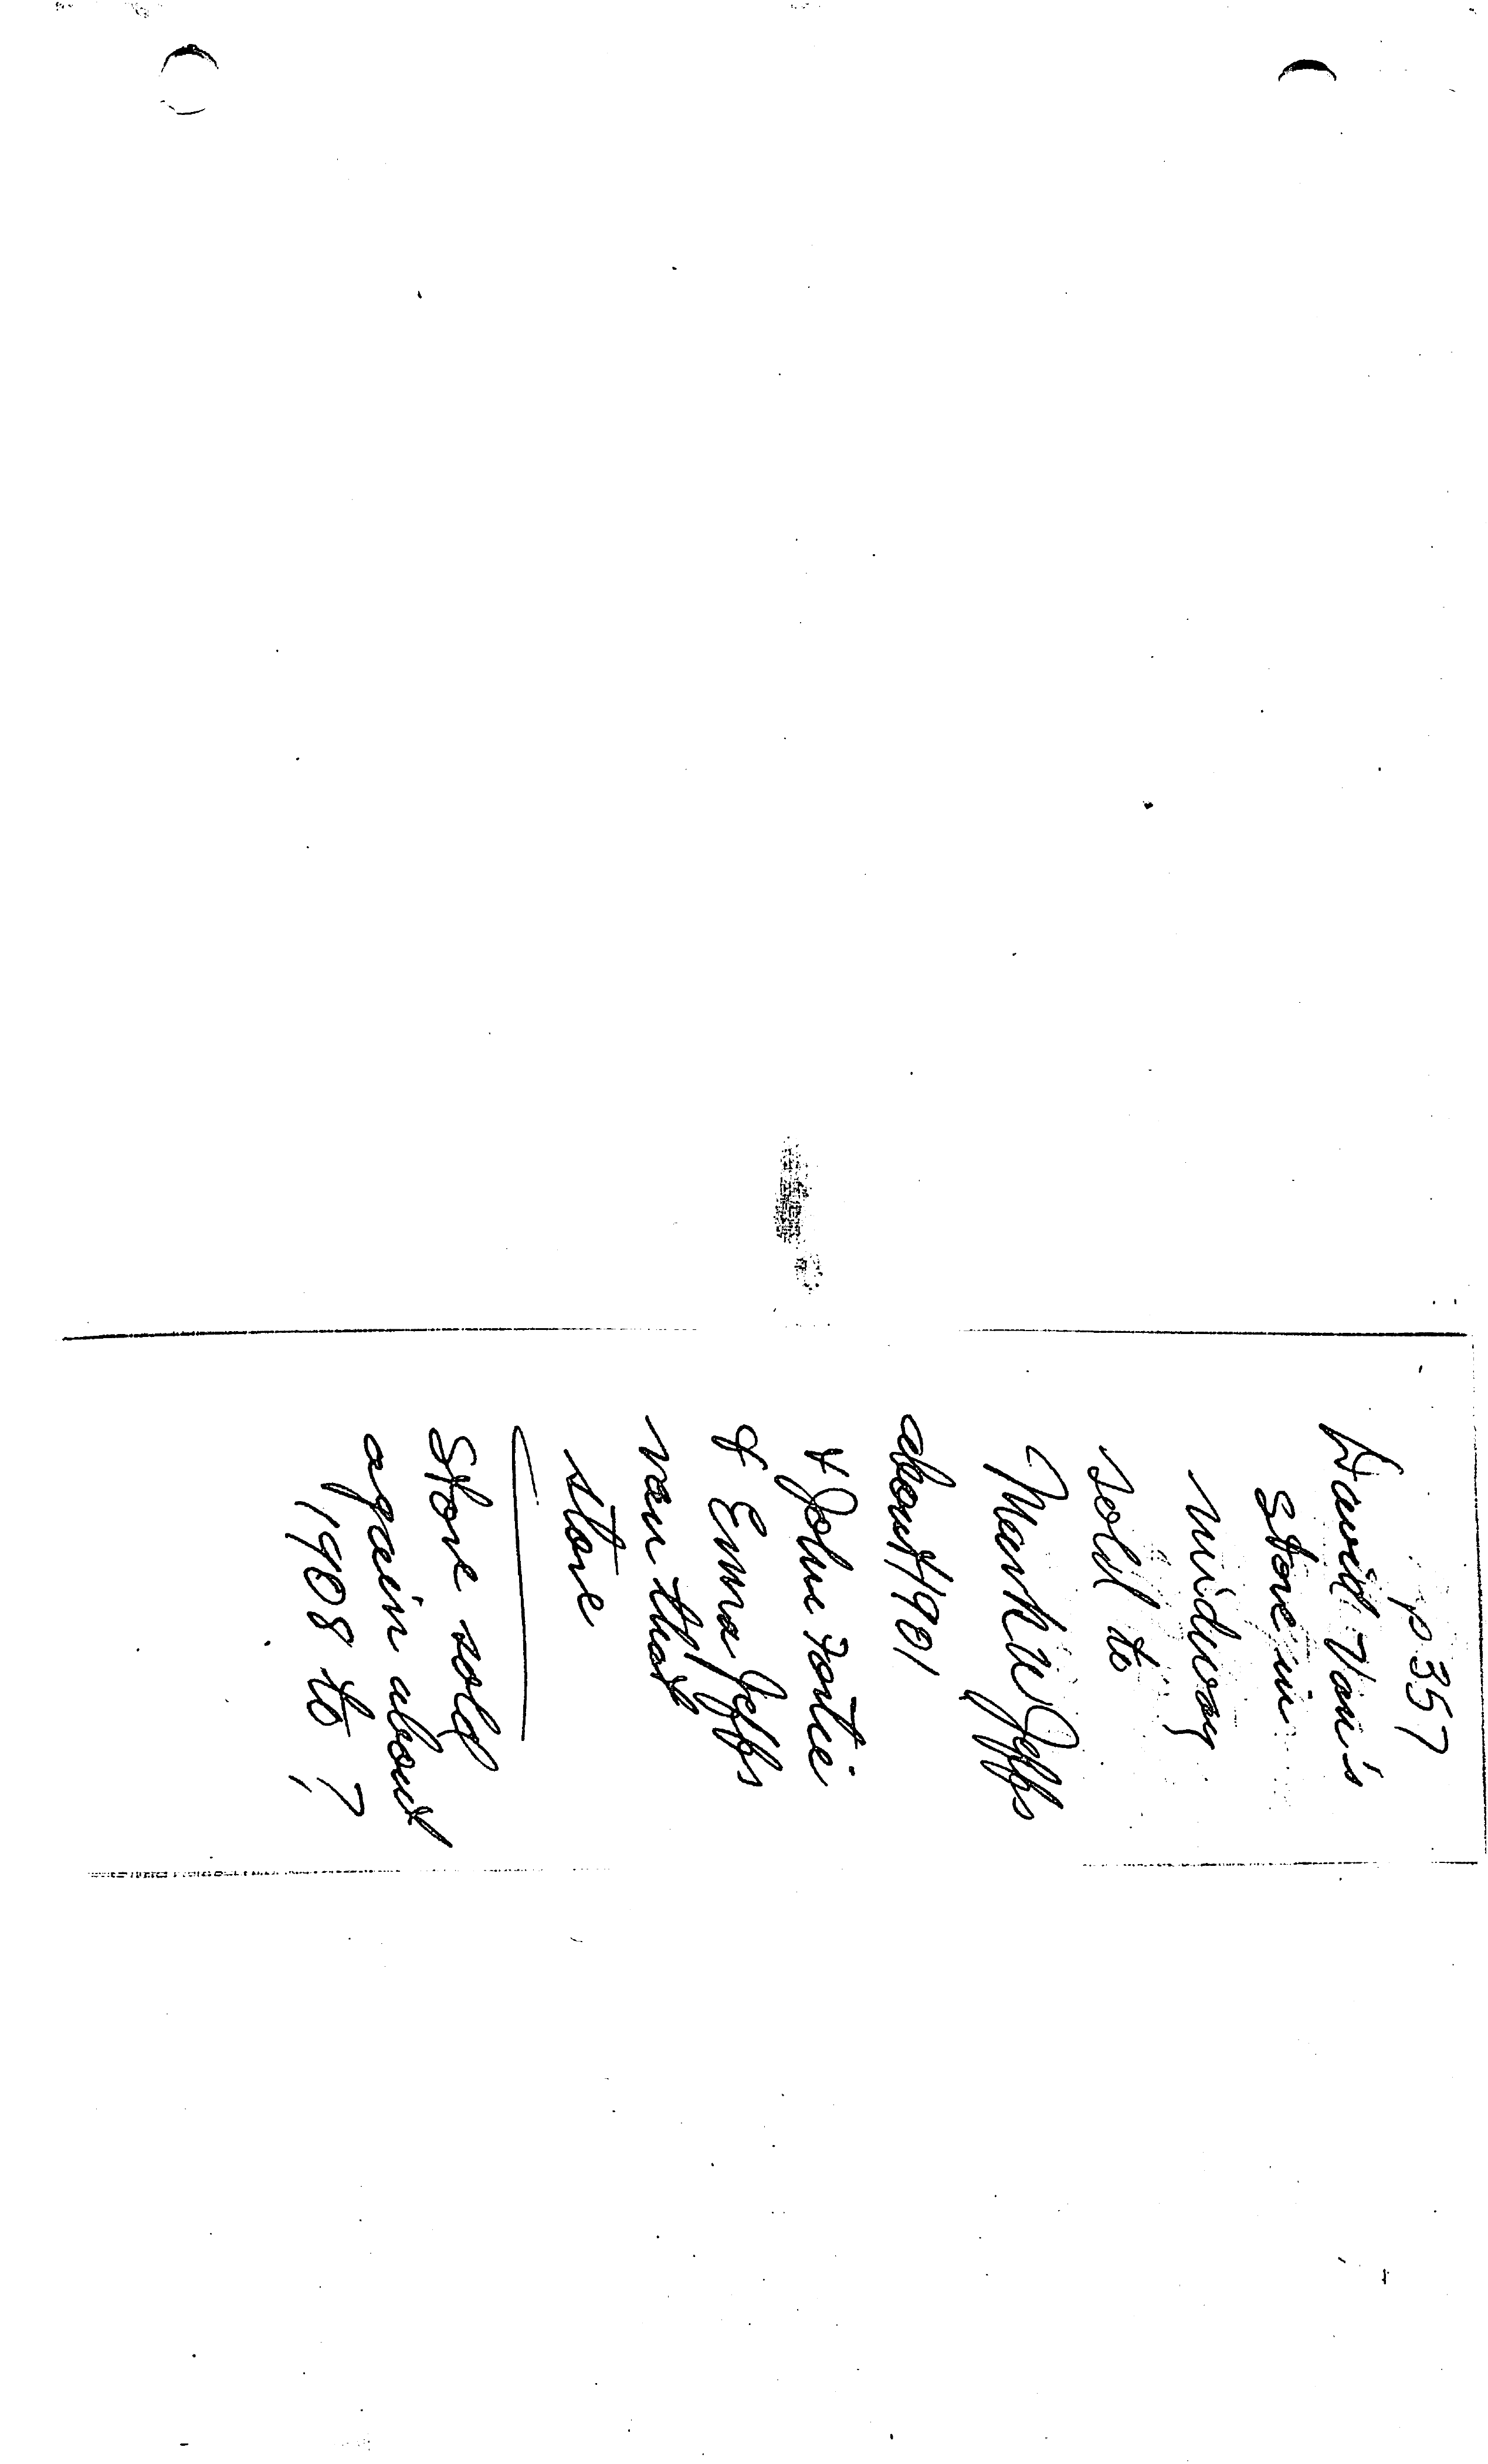 p 357
David Van's
Store in
midway
sold to
Mark W Jeffs
about 1901
& John Fortie
& Emma Jeffs
ran that
store
Store sold
again about
1908 to ?